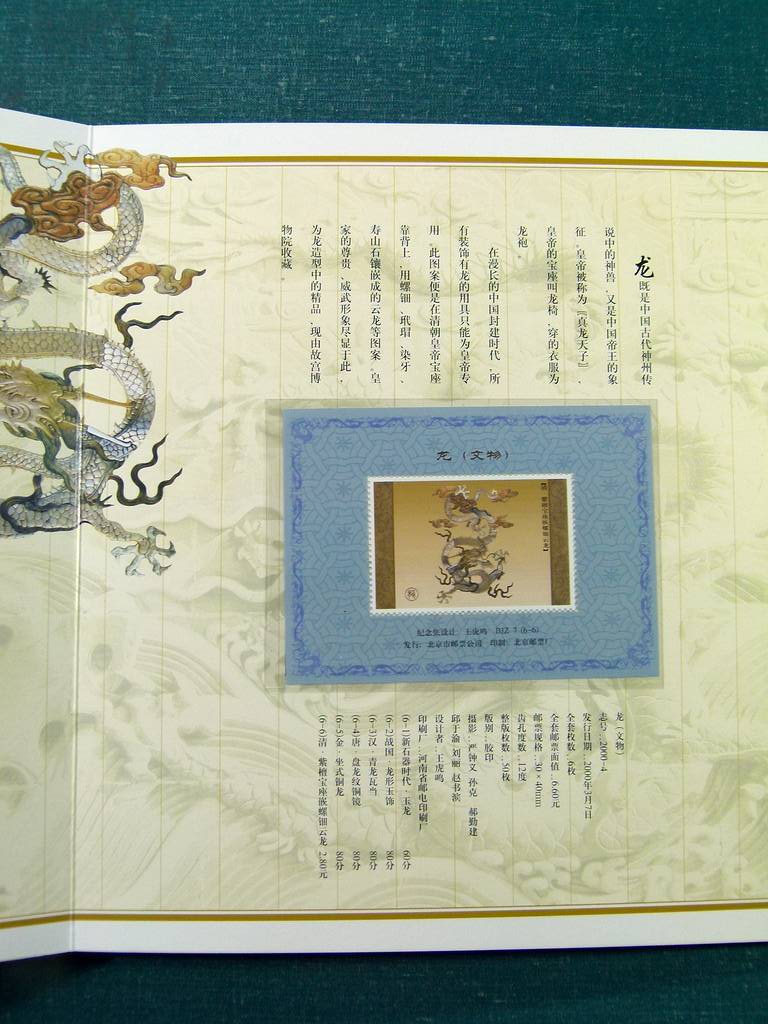 龙既是中国古代神州传
说中的神兽，又是中国帝王的象
征。皇帝被称为『真龙天子』，
皇帝的宝座叫龙椅，穿的衣服为
龙袍。
在漫长的中国封建时代，所
有装饰有龙的用具只能为皇帝专
用。此图案便是在清朝皇帝宝座
靠背上，用螺钿、玳瑁、染牙、
寿山石镶嵌成的云龙等图案。皇
家的尊贵、威武形象尽显于此，
为龙造型中的精品，现由故宫博
物院收藏
龙（文物）
纪念张设计：王虎鸣 BJZ-7 (6-6)
发行：北京市邮票公司 印制：北京邮票厂
龙（文物）
志号：2000-4
发行日期：2000年3月7日
全套枚数：6枚
全套邮票面值：6.60元
邮票规格：30×40mm
齿孔度数：12度
整版枚数：50枚
版别：胶印
摄影：严钟义 孙克 郝勤建
邱子渝 刘丽 赵书滨
设计者：王虎鸣
印刷厂：河南省邮电印刷厂
(6-1)新石器时代·玉龙 60分
(6-2)战国·龙形玉饰 80分
(6-3)汉·青龙瓦当 80分
(6-4)唐·盘龙纹铜镜 80分
(6-5)金·坐式铜龙 80分
(6-6)清·紫檀宝座嵌螺钿云龙 2.80元